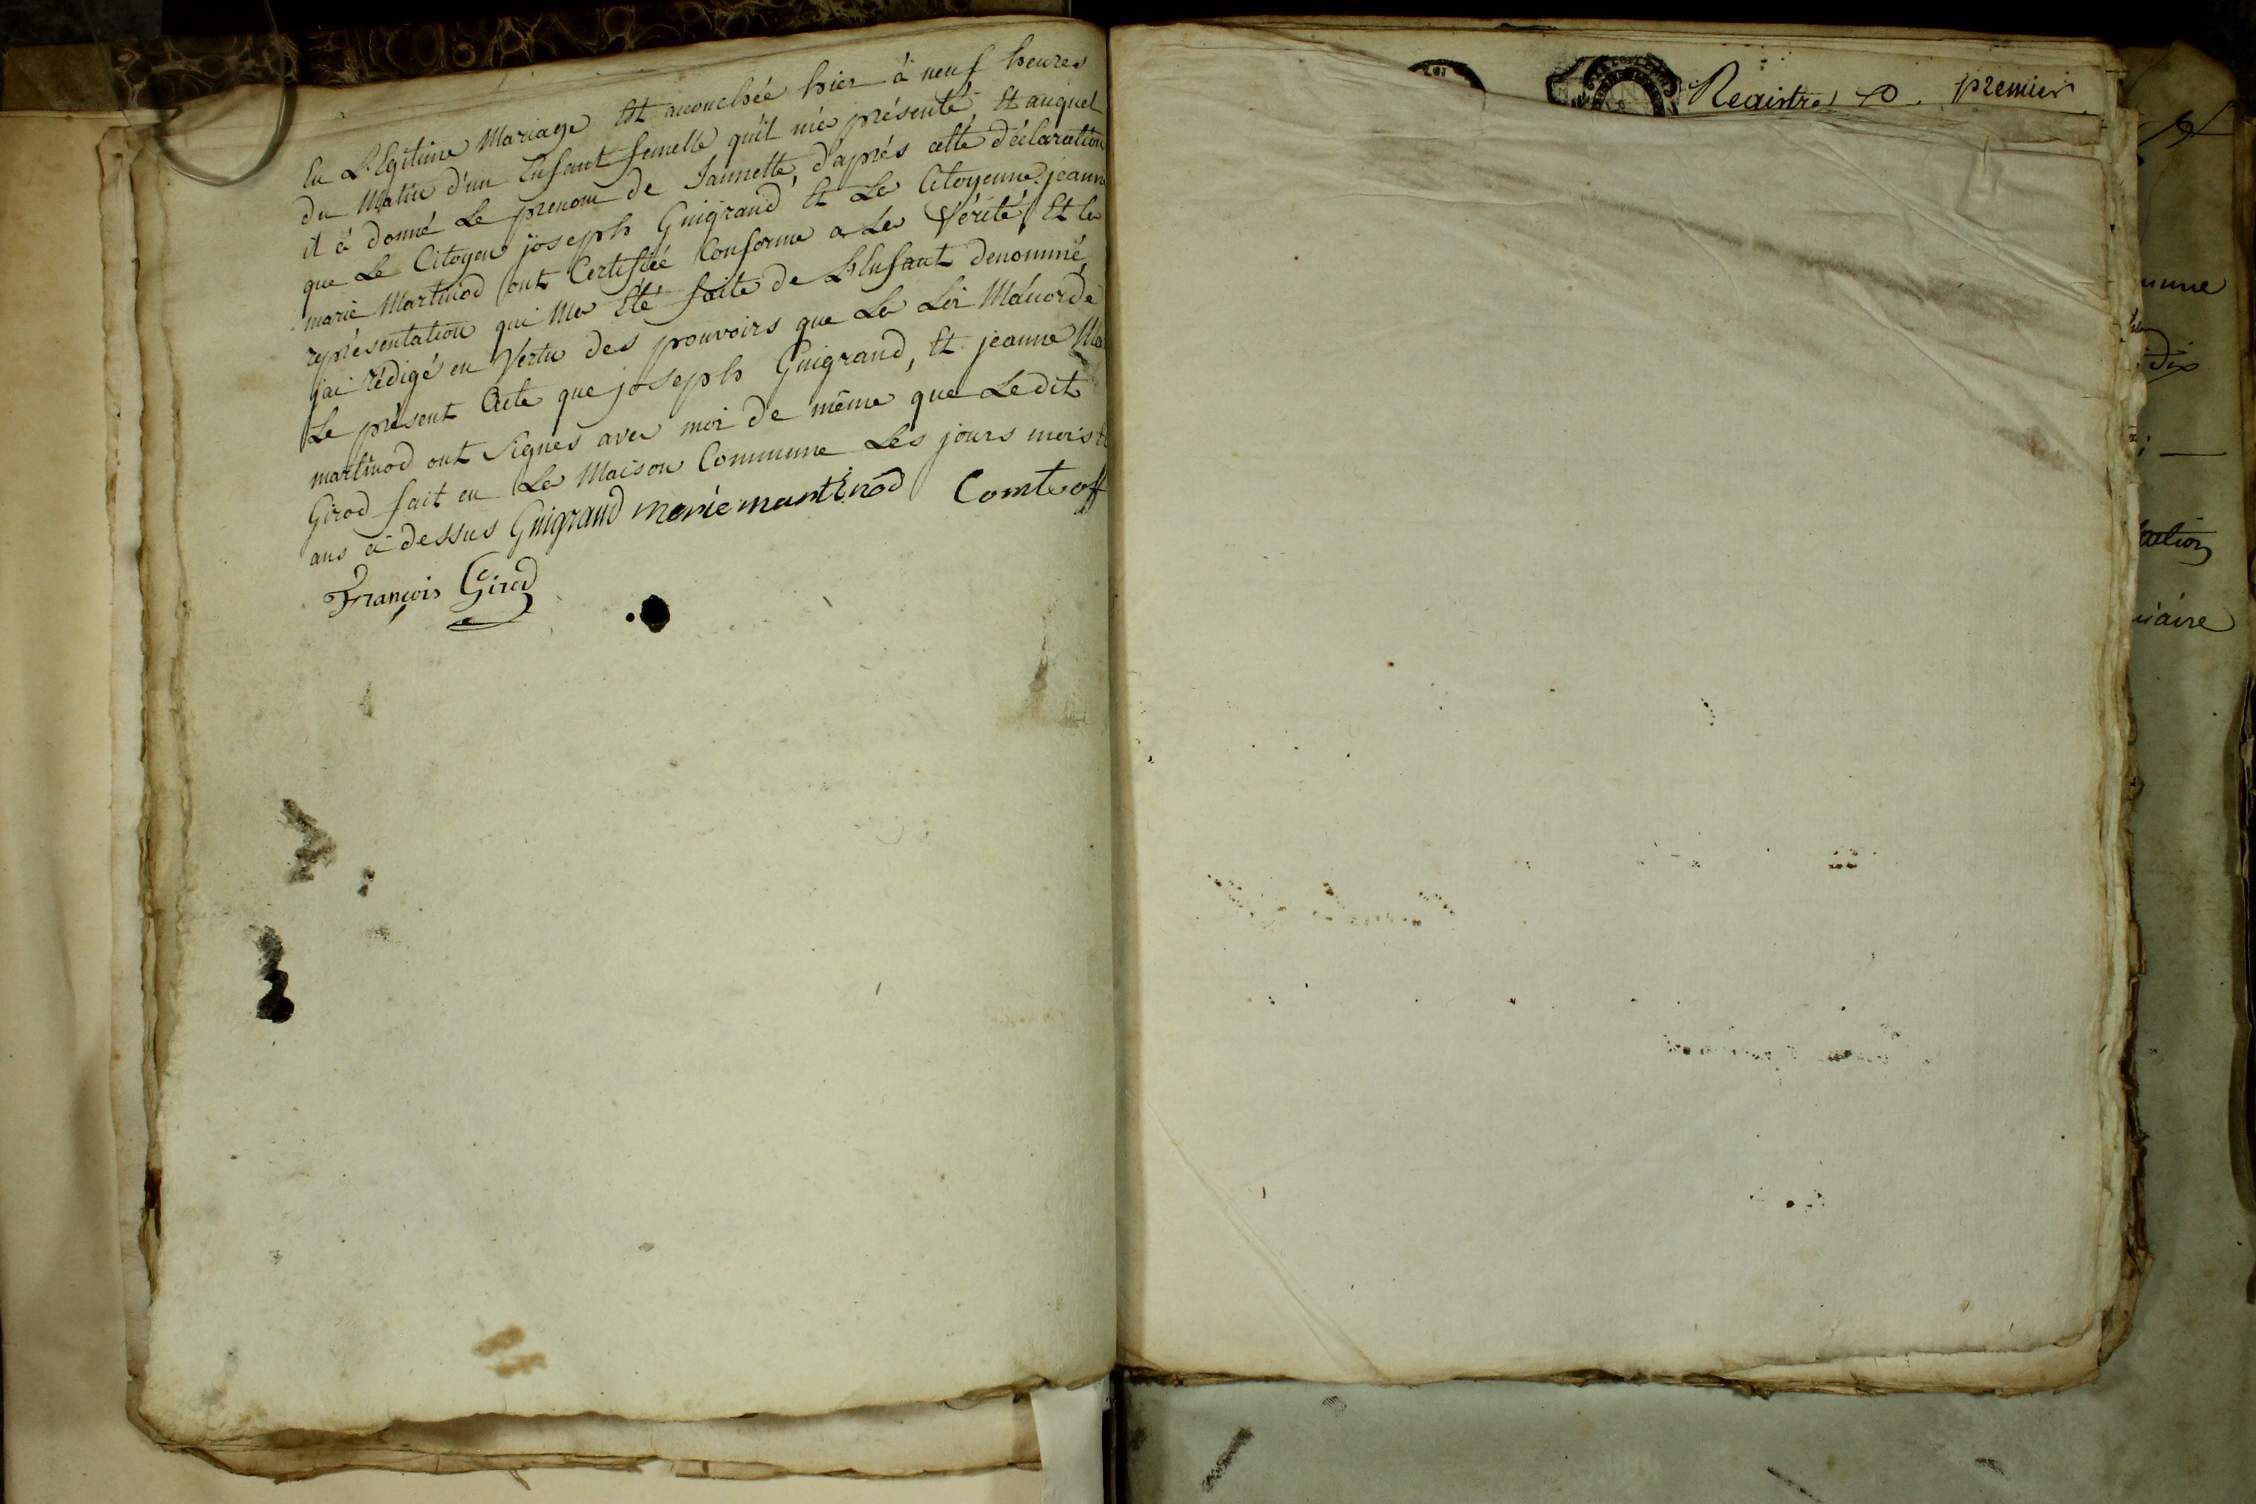 En L'Egitime Mariage Est acouchée hier à neuf heures
du Matin d'un Enfant femelle qu'il m'a présenté Et auquel
il à donné Le prenom de Jannette, d'après cette déclaration
que Le Citoyen joseph Guigrand Et La Citoyenne jeanne
marie Martinod ont Certifiée Conforme a La Vérité, Et la
représentation qui Ma Été faite de L'Enfant denommé,
jai rédigé en Vertu des pouvoirs que La Loi M'acorde
Le présent Acte que joseph Guigrand, Et jeanne Ma
martinod ont Signes avec moi de même que Ledit
Girod fait en La Maison Commune Les jours mois Et
ans ci dessus Guigrand marie martinod Comte off
François Girod
Registre premier
mune
dix
tation
iaire